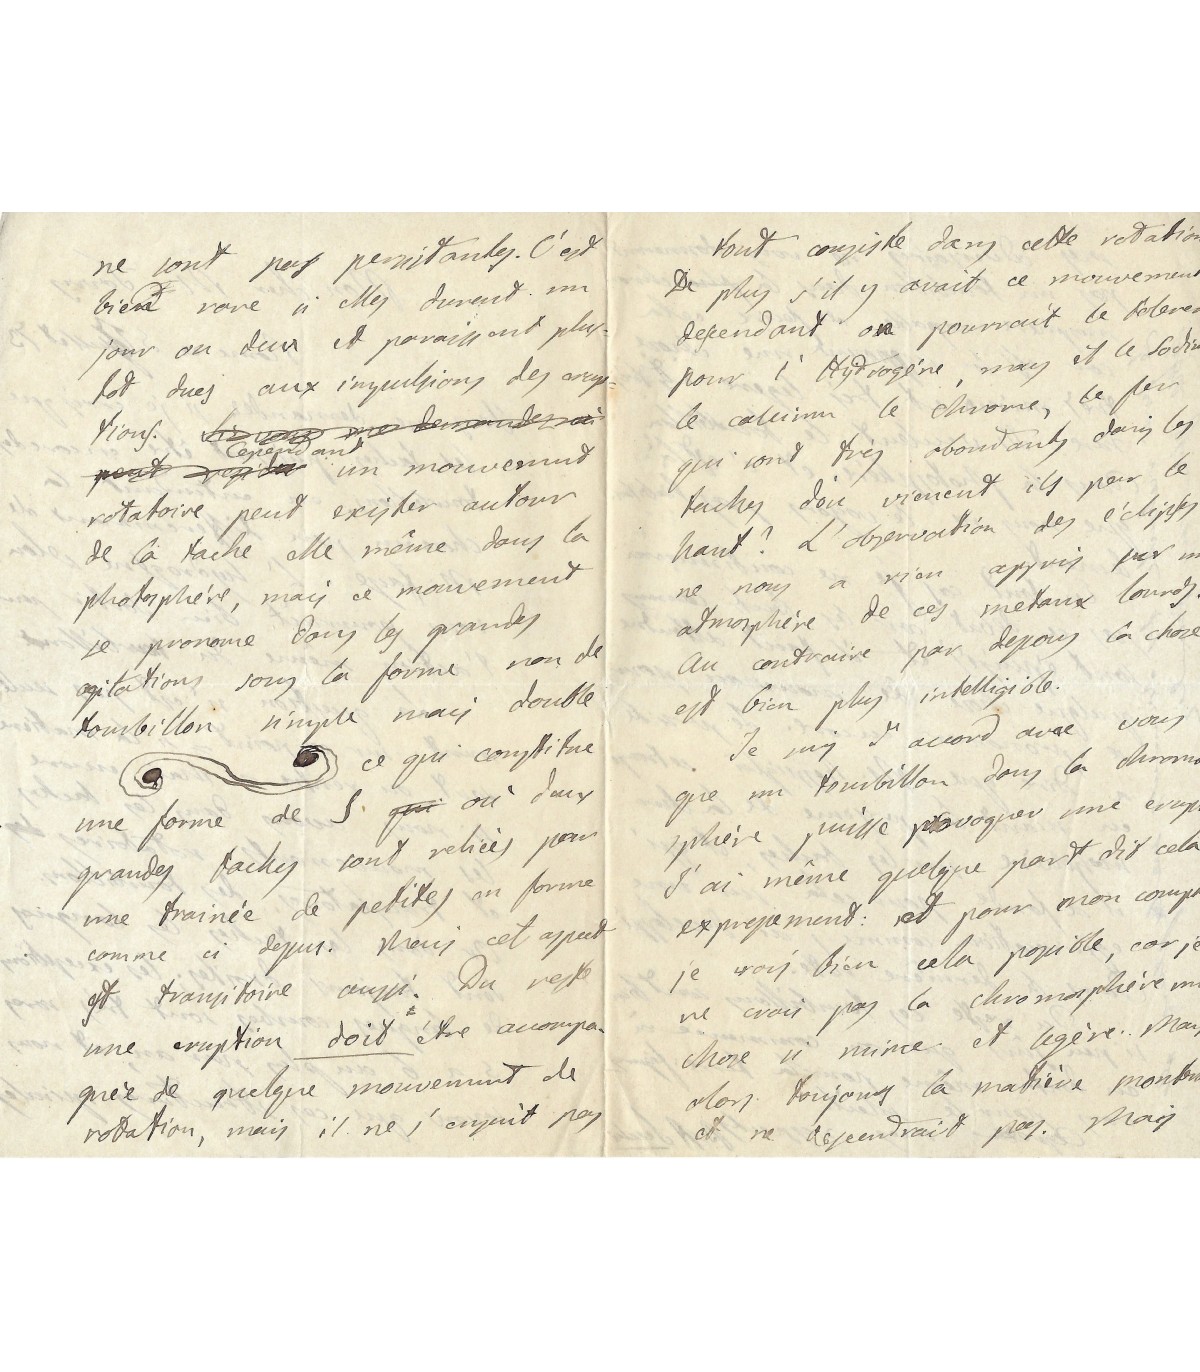 ne sont pas persistantes. C'est
bien rare si elles durent un
jour ou deux et paraissent plus-
tot dues aux impulsions des erup-
tions. me demandez
Cependant
un mouvement
rotatoire peut exister autour
de la tache elle même dans la
photosphére, mais ce mouvement
se prononce dans les grandes
agitations sous la forme non de
tourbillon simple mais double
ce qui constitue
une forme de S qui où deux
grandes taches sont reliées par
une trainée de petites en forme
comme ci dessus. Mais cet aspect
est transitoire aussi. Du reste
une eruption doit être acompa-
gnée de quelque mouvement de
rotation, mais il ne s'ensuit pas
tout consiste dans cette rotation
De plus s'il y avait ce mouvement
dependant on pourrait le tolerer
pour l'Hydrogéne, mais et le Sodium
le calcium le chrome, le fer
qui sont trés abondants dans les
taches d'ou vienent ils par le
haut? L'observation des éclipses
ne nous a rien appris sur une
atmosphére de ces metaux lourds.
Au contraire par dessous la chose
est bien plus intelligible.
Je suis d'accord avec vous
que un tourbillon dans la chromo
sphére puisse provoquer une erup
J'ai même quelque part dit cela
expressement: et pour mon compte
je crois bien cela possible, car je
ne crois pas la chromosphére une
chose si mince et legére. Mais
alors toujours la matiére monterait
et ne descendrait pas. Mais